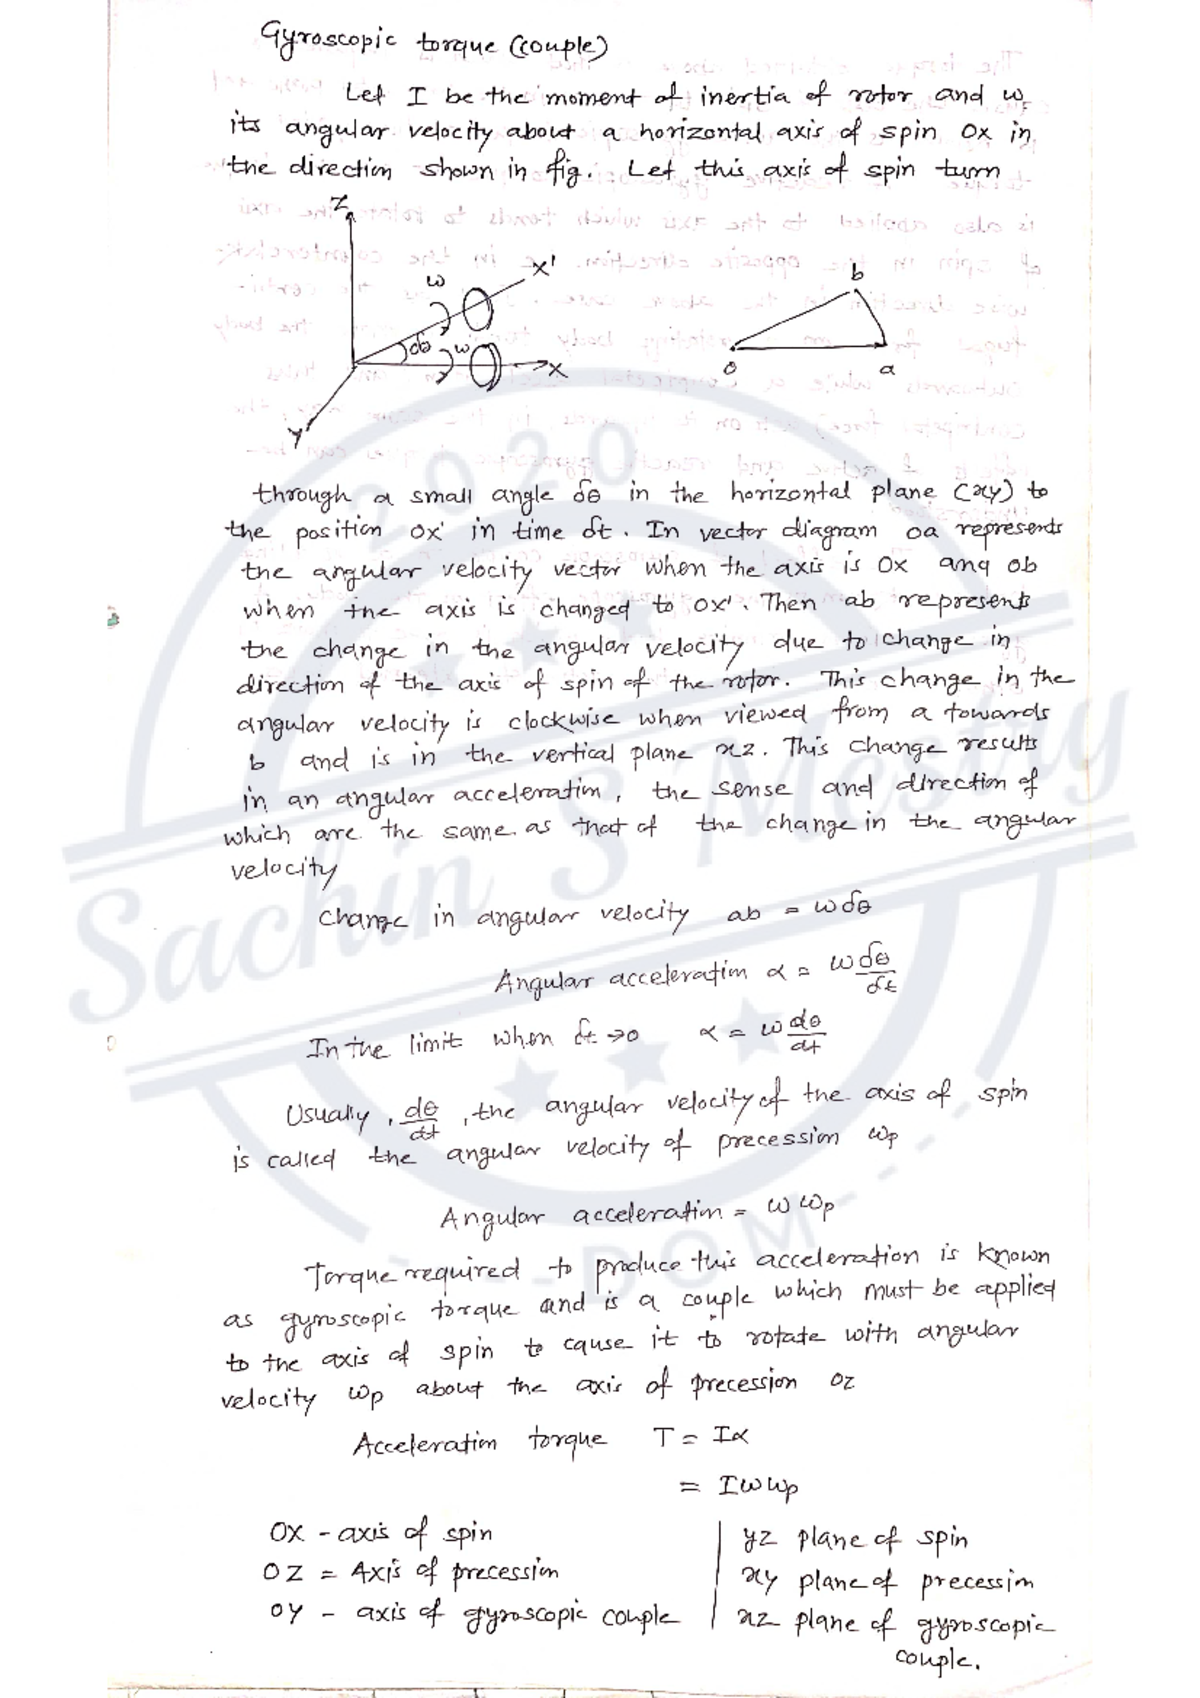 Gyroscopic torque (couple)
Let I be the moment of inertia of rotor and ω,
its angular velocity about a horizontal axis of spin OX in
the direction shown in fig. Let this axis of spin turn
Z
X'
ω
δθ
ω
X
Y
b
o
a
through a small angle δθ in the horizontal plane (xy) to
the position OX' in time δt. In vector diagram oa represents
the angular velocity vector when the axis is OX and ob
when the axis is changed to OX'. Then ab represents
the change in the angular velocity due to change in
direction of the axis of spin of the rotor. This change in the
angular velocity is clockwise when viewed from a towards
b and is in the vertical plane xz. This change results
in an angular acceleration, the sense and direction of
which are the same as that of the change in the angular
velocity
Change in angular velocity ab = ωδθ
Angular acceleration α = ω δθ/δt
In the limit when δt → 0 α = ω dθ/dt
Usually, dθ/dt, the angular velocity of the axis of spin
is called the angular velocity of precession ωp
Angular acceleration = ω ωp
Torque required to produce this acceleration is known
as gyroscopic torque and is a couple which must be applied
to the axis of spin to cause it to rotate with angular
velocity ωp about the axis of precession OZ
Acceleration torque T = Iα
= Iωωp
OX - axis of spin
OZ = Axis of precession
OY - axis of gyroscopic couple
yz plane of spin
xy plane of precession
xz plane of gyroscopic
couple.
2020
Sachin S Mestry
DOM